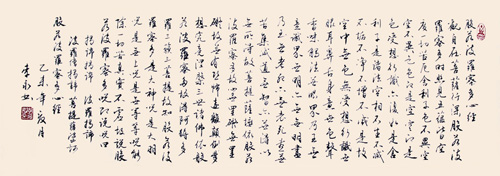 般若波羅蜜多心經
觀自在菩薩行深般若波
羅蜜多時照見五蘊皆空
度一切苦厄舍利子色不異空
空不異色色即是空空即是
色受想行識亦復如是舍
利子是諸法空相不生不滅
不垢不淨不增不減是故
空中无色无受想行識无
眼耳鼻舌身意无色聲
香味觸法无眼界乃至无
意識界无无明亦无无明盡
乃至无老死亦无老死盡无
苦集滅道无智亦无得以
无所得故菩提薩埵依般若
波羅蜜多故心无罣礙无罣
礙故无有恐怖遠離顛倒夢
想究竟涅槃三世諸佛依般
若波羅蜜多故得阿耨多
羅三藐三菩提故知般若波
羅蜜多是大神咒是大明
咒是无上咒是无等等咒能
除一切苦真實不虛故說般
若波羅蜜多咒即說咒曰
揭諦揭諦 波羅揭諦
波羅僧揭諦 菩提薩婆訶
般若波羅蜜多心經
乙未年夏月